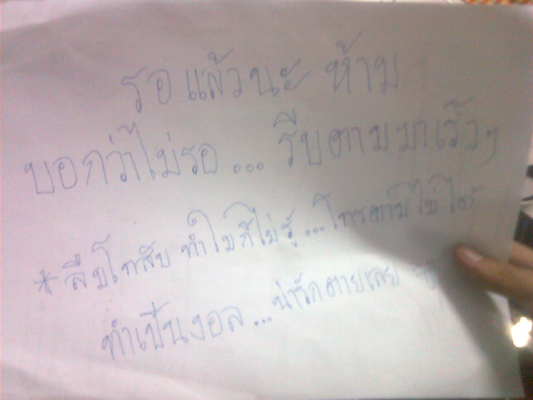 รอแล้วนะ ห้าม
บอกว่าไม่รอ... รีบตามมาเร็วๆ
*ลืมโทสับ ทำไมก็ไม่รู้...โทรตามไม่ได้
ทำเป็นงอล...น่ารักตายเลย